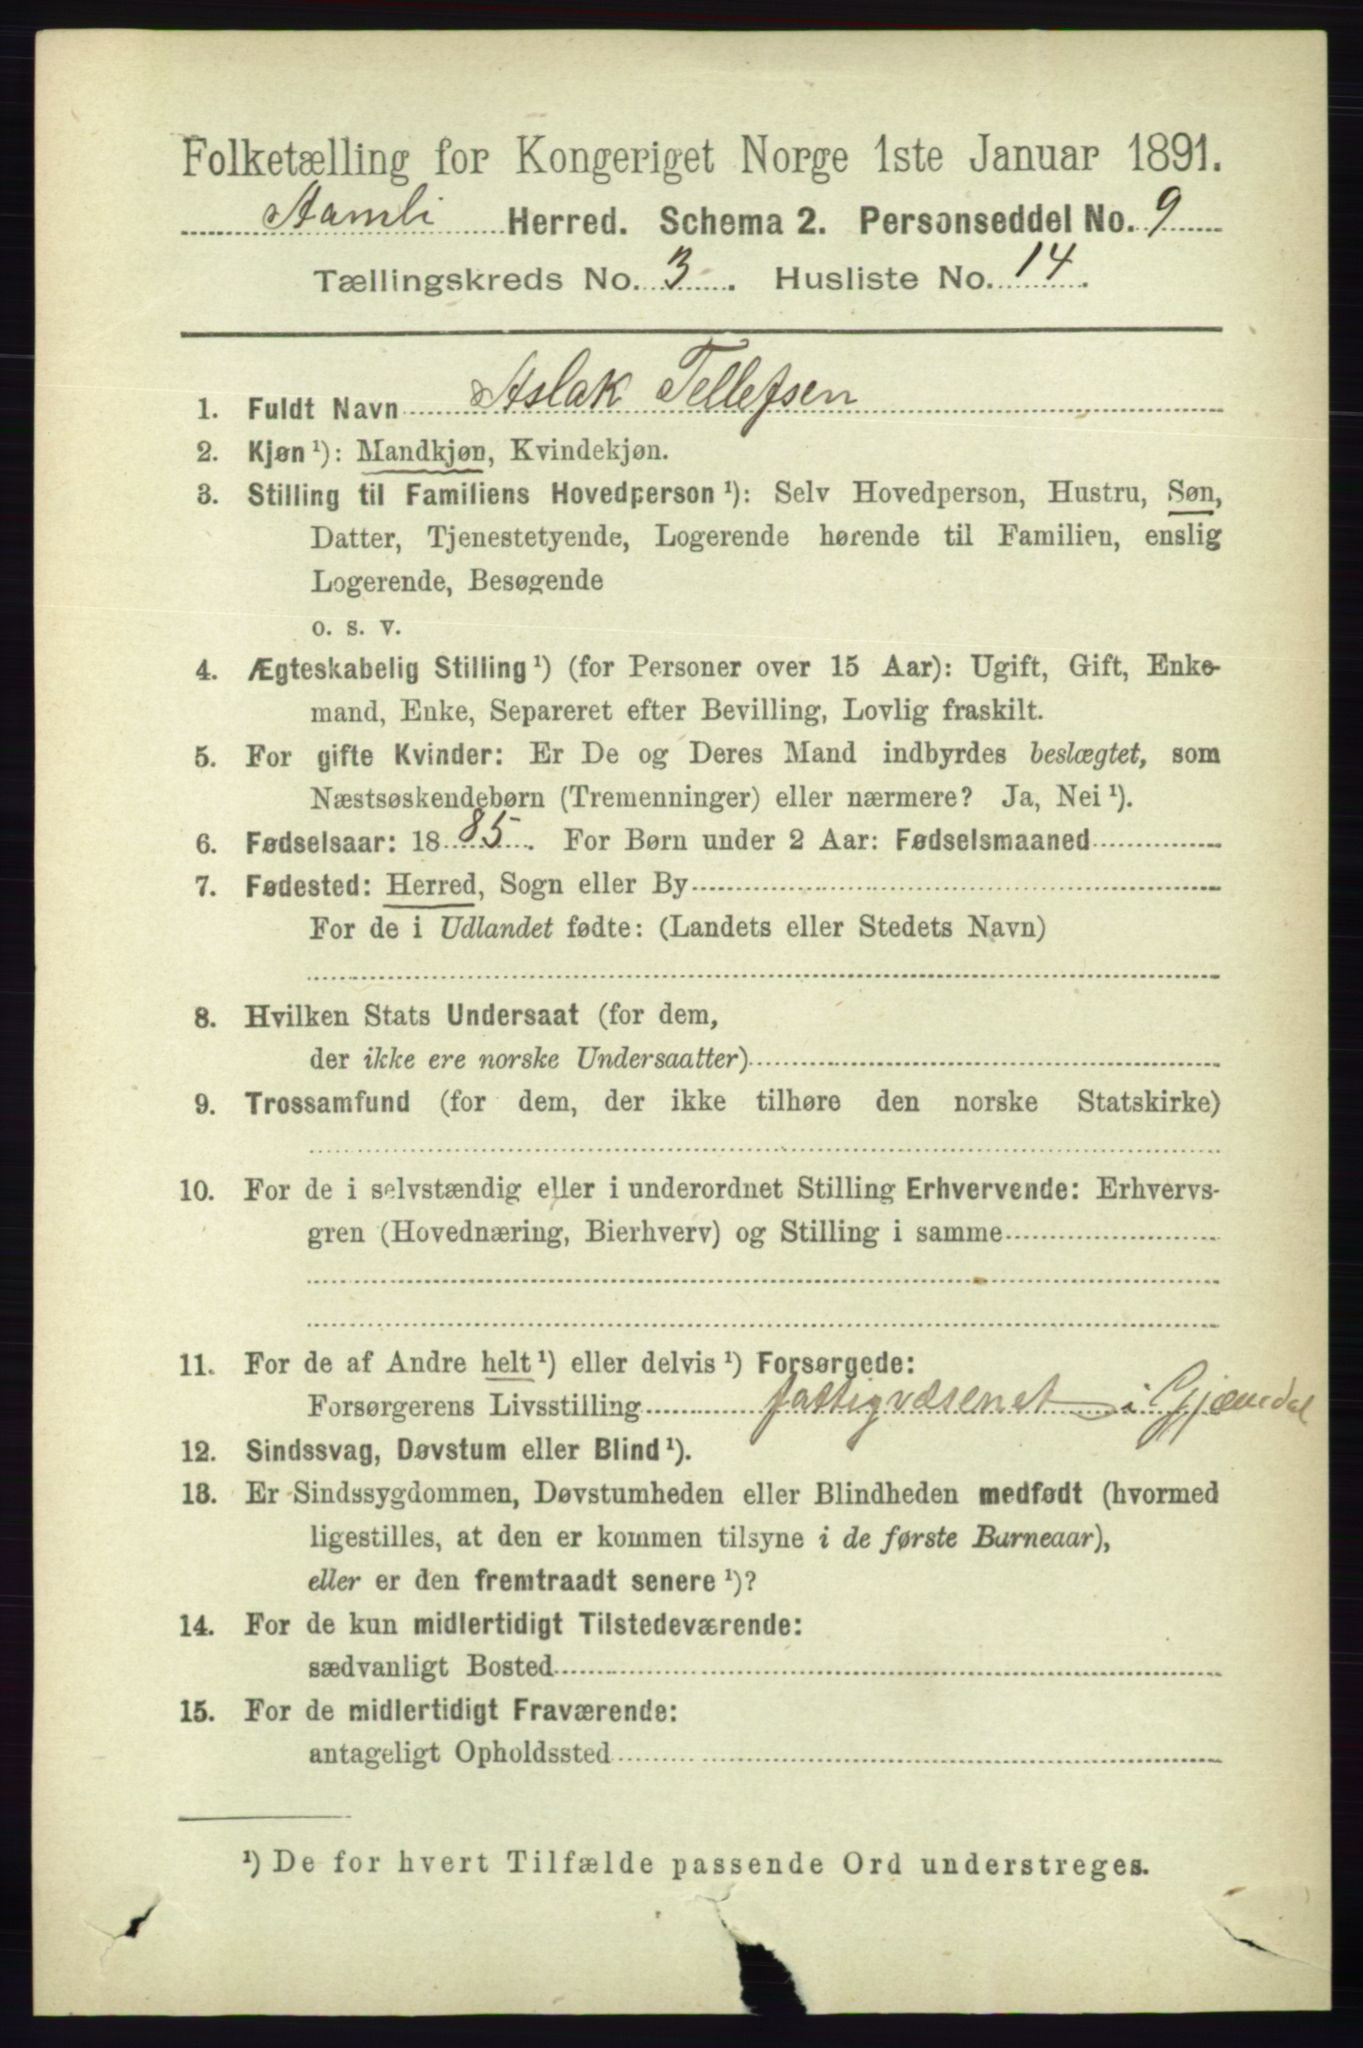 Folketælling for Kongeriget Norge 1ste Januar 1891.
Aamli Herred. Schema 2. Personseddel No. 9
Tællingskreds No. 3. Husliste No. 14.
1. Fuldt Navn Aslak Tellefsen
2. Kjøn ¹): Mandkjøn, Kvindekjøn.
3. Stilling til Familiens Hovedperson ¹): Selv Hovedperson, Hustru, Søn,
Datter, Tjenestetyende, Logerende hørende til Familien, enslig
Logerende, Besøgende
o. s. v.
4. Ægteskabelig Stilling ¹) (for Personer over 15 Aar): Ugift, Gift, Enke-
mand, Enke, Separeret efter Bevilling, Lovlig fraskilt.
5. For gifte Kvinder: Er De og Deres Mand indbyrdes beslægtet, som
Næstsøskendebørn (Tremenninger) eller nærmere? Ja, Nei ¹).
6. Fødselsaar: 1885. For Børn under 2 Aar: Fødselsmaaned
7. Fødested: Herred, Sogn eller By
For de i Udlandet fødte: (Landets eller Stedets Navn)
8. Hvilken Stats Undersaat (for dem,
der ikke ere norske Undersaatter)
9. Trossamfund (for dem, der ikke tilhøre den norske Statskirke)
10. For de i selvstændig eller i underordnet Stilling Erhvervende: Erhvervs-
gren (Hovednæring, Bierhverv) og Stilling i samme
11. For de af Andre helt ¹) eller delvis ¹) Forsørgede:
Forsørgerens Livsstilling fattigvæsenet i Gjævedal
12. Sindssvag, Døvstum eller Blind ¹).
13. Er Sindssygdommen, Døvstumheden eller Blindheden medfødt (hvormed
ligestilles, at den er kommen tilsyne i de første Barneaar),
eller er den fremtraadt senere ¹)?
14. For de kun midlertidigt Tilstedeværende:
sædvanligt Bosted
15. For de midlertidigt Fraværende:
antageligt Opholdssted
¹) De for hvert Tilfælde passende Ord understreges.